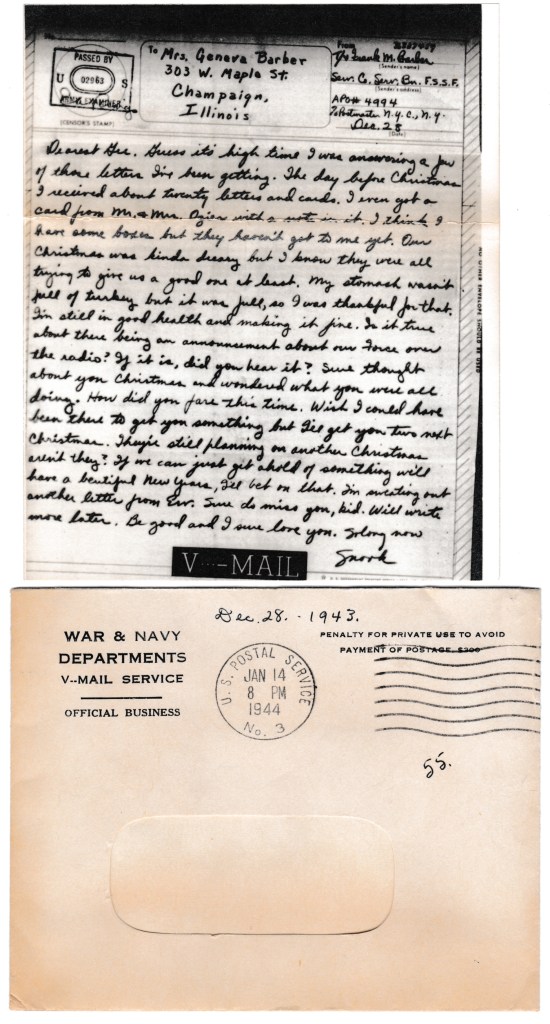 No.
PASSED BY
U S
02963
ARMY EXAMINER
(CENSOR'S STAMP)
To Mrs. Geneva Barber
303 W. Maple St.
Champaign,
Illinois
From
T/5 Frank M. Barber
(Sender's name)
Serv. C. Serv. Bn. F.S.S.F.
(Sender's address)
APO# 4994
% Postmaster N.Y.C., N.Y.
Dec. 28
(Date)
Dearest Gee. Guess it's high time I was answering a few
of those letters I've been getting. The day before Christmas
I received about twenty letters and cards. I even got a
card from Mr. & Mrs. Ozier with a note in it. I think I
have some boxes but they haven't got to me yet. Our
Christmas was kinda dreary but I know they were all
trying to give us a good one at least. My stomach wasn't
full of turkey but it was full, so I was thankful for that.
I'm still in good health and making it fine. Is it true
about there being an announcement about our Force over
the radio? If it is, did you hear it? Sure thought
about you Christmas and wondered what you were all
doing. How did you fare this time. Wish I could have
been there to get you something but I'll get you two next
Christmas. They're still planning on another Christmas
aren't they? If we can just get ahold of something will
have a beutiful New Years, I'll bet on that. I'm sweating out
another letter from Erv. Sure do miss you, kid. Will write
more later. Be good and I sure love you. Solong now
Snork
V···-MAIL
Dec. 28. - 1943.
WAR & NAVY
DEPARTMENTS
V--MAIL SERVICE
OFFICIAL BUSINESS
U.S. POSTAL SERVICE
JAN 14
8 PM
1944
No. 3
PENALTY FOR PRIVATE USE TO AVOID
PAYMENT OF POSTAGE, $300
55.